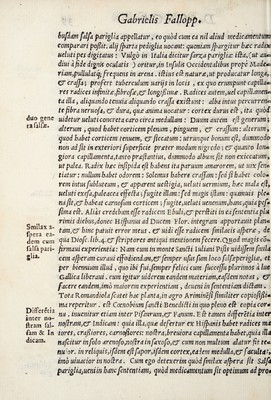 Gabrielis Fallopp.
busdam salsa pariglia appellatur, eo quòd cum ex nil aliud medicamentum
comparari possit. alij sparta pediglia uocant: quoniam spargitur hæc radix
ueluti pes digitatus: Vulgò in Italia dicitur sarza
diui à fide dignis oculati ) oritur, in Insulis Occidentalibus prope
riam, pullulatq; frequens in arena. istius est natura, ut producatur longa,
& crassa: profert tuberculum uerijs in locis, ex quo erumpunt capilla
res radices infinitæ, fibrosæ, & longissimæ. Radices autem, uel capillamen
ta illa, aliquando tenuia aliquando crassa existunt: albæ intus percurren
te fibra neruosa, & dura, quæ anima uocatur: cortex durus est, ita quòd
uidetur ueluti concreta caro circa medullam: Duum autem est generum;
alterum, quod habet corticem plenum, pinguem, & crassum: alterum;
quod habet corticem tenuem, & fœcatum: utrunque bonum est, dummodo
non ad sit in exteriori superficie præter modum nigredo; et quanto lon
giora capillamenta, tanto præstantius, dummodo album sit non exiccatum,
ut palea. Radix hæc insipida est habens ita paruum amarorem, ut uix sen
tiatur: nullam habet odorem: Solemus habere crassam: sed si habet colo
rem intus sublateum, & apparent uestigia, ueluti uermium, hæc mala est,
ueluti exesa, paleacea effecta; fugite illam: sed magis illam: quamuis ple
na sit, & habeat carnosum corticem; fugite, ueluti uenenum, hanc, quia pes
sima est. Aliâs credebam esse radicem Ebuli, & perstiti in ea sententia plu
rimis diebus, donec Hispania ad Ducem Flor. integram apportant plan
tam, & hinc patuit error meus. et uidi esse radicem smilacis asperæ, de
qua Diosc. lib.4. & scriptores antiqui mentionem fecere. Quod magis co
firmauit experientia: Nam cum in monte Sancti Iuliani Pisis uidissem smila
cem asperam curaui effodiendam, & semper usus sum loco salsepariglia, et
per biennium illud, quo ibi fui, semper felici cum successu plurimos à lue
Gallica liberaui. cum igitur uiderem eandem materiam, & eundem notas, &
facere eandem, imò maiorem experientiam, deueni in sententiam dictam.
Tota Romandiola scatet hac planta, in agro Ariminẽsi similiter copiosissi
mæ reperitur. est Cœnobium Sancti Benedicti in quo pleno est copia cor
nu. inuenitur etiam inter Pisaurum, & Fanum. Est tamen differẽtia inter
nostram, & Indicam: quia illa, quæ defertur ex Hispanis habet radices ma
iores, crassiores, carnosiores: nostra, breuiora capillamenta habet, quia illa
nascitur in solo arenoso, nostra in saxoso, & cum non multum alatur fit te
nuior. in reliquis, idem est sapor, idem cortex, eadem medullæ, & facultas,
imò uiuacior in nostra. Cum ego deteexerim quòd smilax aspera sit Salsa
pariglia, ueni in hanc sententiam, quòd medicamentum sit optimum ad pro
duo gene
ra salsæ.
Smilax a
spera ea-
dem cum
salsa pari
glia.
Differẽtia
inter no-
stram sal-
sam & In
dicam.